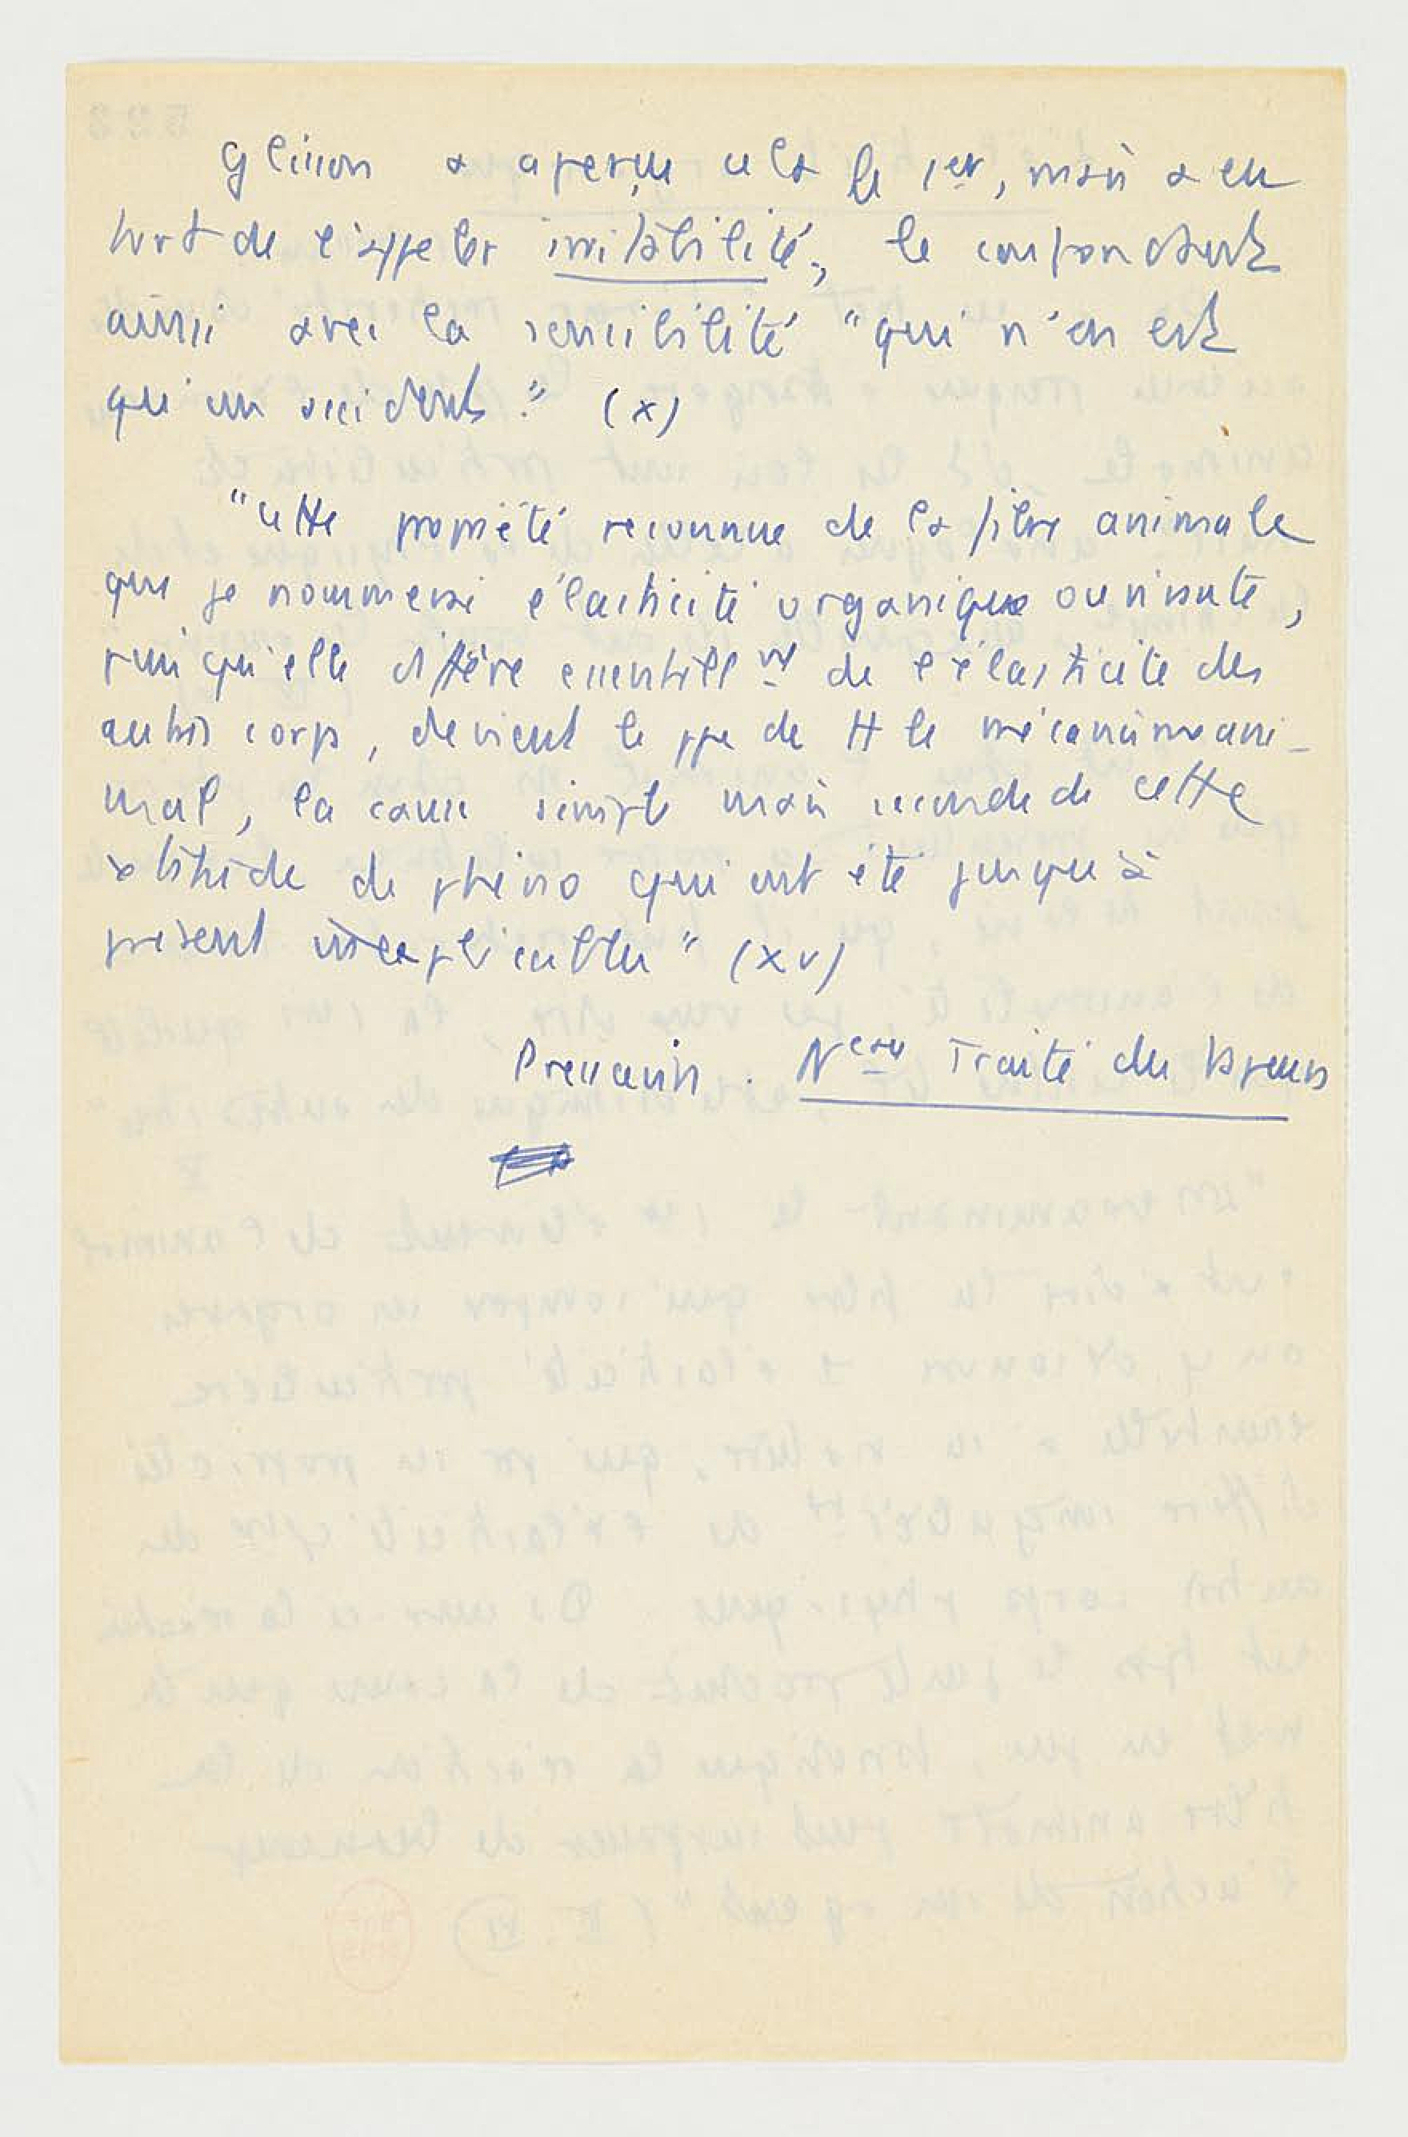 Glisson a aperçu cela le 1er, mais a eu
tort de l'appeler irritabilité, le confondant
ainsi avec la sensibilité "qui n'en est
qu'un accident." (X)
"cette propriété reconnue de la fibre animale
que je nommerai élasticité organique ou innée,
puisqu'elle diffère essentiellt de l'élasticité des
autres corps, devient le ppe de tt le mécanisme ani-
mal, la cause simple mais seconde de cette
multitude de phéno qui ont été jusqu'à
présent inexplicables" (XV)
Pressavin. Neau Traité des Vapeurs